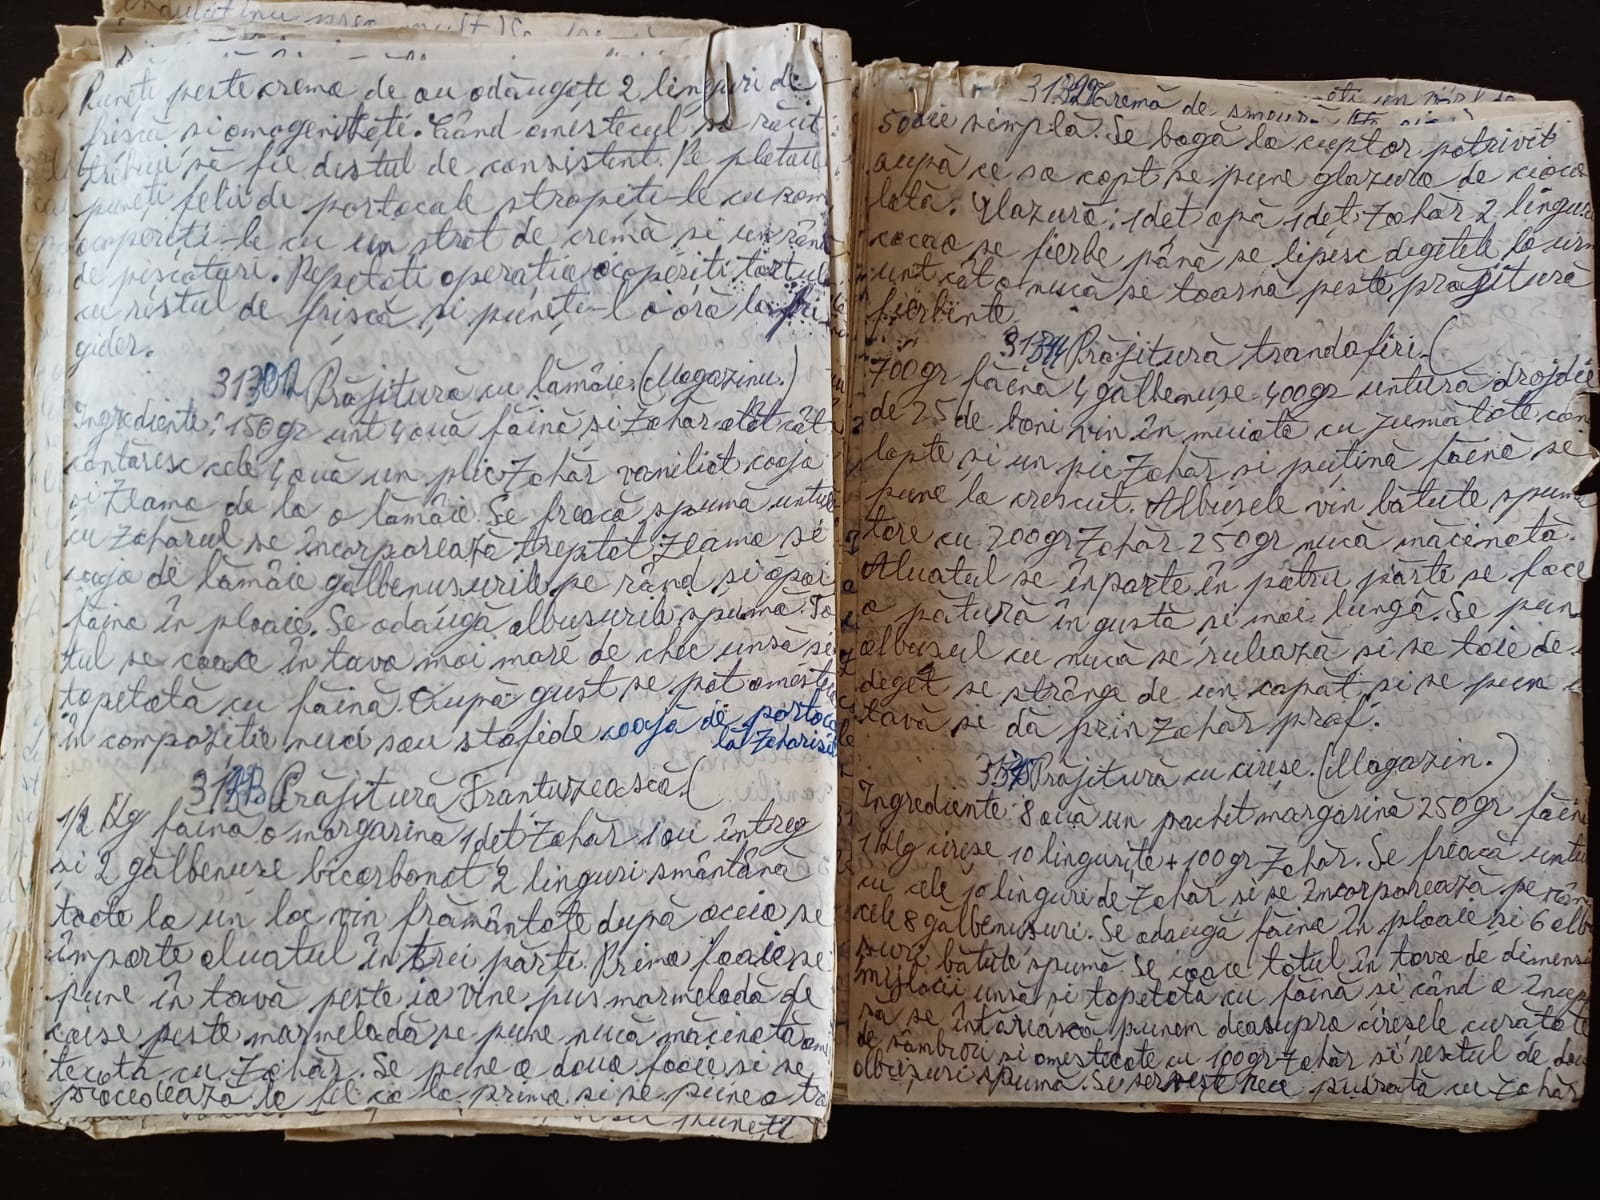 Puneți peste crema de ou adăugați 2 linguri de
frișcă și omogenizați. Când amestecul sa răcit
tribuii să fie destul de consistent. Pe platou
puneți felii de portocale stropiți-le cu rom
acoperiți-le cu un strat de cremă și un rând
de pișcoturi. Repetați operația acoperiți tortul
cu restul de frișcă și puneți-l o oră la fri
gider.
Prăjitură cu lămâie. (Magazinu.)
Ingrediente: 150gr unt 4 ouă făină și zahăr atât cât
cântăresc cele 4 ouă un plic zahăr vaniliat coaja
și zeama de la o lămâie. Se freacă spumă untul
cu zahărul se încorporează treptat zeama și
coaja de lămâie gălbenușurile pe rând și apoi
făina în ploaie. Se adaugă albușurile spumă. To
tul se coace în tava mai mare de chec unsă și
tapetată cu făină. După gust se pot amesteca
în compoziție nuci sau stafide coajă de portoca
lă zaharisi
Prăjitură Frantuzească. (
1/2 Klg făină o margarină 1 det zahăr 1 ou întreg
și 2 gălbenușe bicarbonat 2 linguri smântână
toate la un loc vin frământate după aceia se
împarte aluatul în trei părți. Prima foaie se
pune în tavă peste ia vine pus marmeladă de
caise peste marmeladă se pune nucă măcinată am
tecată cu zahăr. Se pune a doua foaie și se
procedează la fel ca la prima și se pune a tra
Cremă de
50aie simplă. Se bagă la cuptor potrivit
după ce sa copt se pune glazura de cioco
lată. Glazură: 1 det apă 1 det zahăr 2 linguri
cacao se fierbe până se lipesc degetele la urm
unt cât o nucă se toarnă peste prăjitură
fierbinte.
Prăjitură trandafiri. (
700gr făină 4 gălbenușe 400gr untură drojdie
de 25 de bani vin înmuiate cu jumătate cană
lapte și un pic zahăr și puțină făină se
pune la crescut. Albușele vin bătute spumă
tare cu 200gr zahăr 250gr nucă măcinată.
Aluatul se înparte în patru părți se face
o pătură îngustă și mai lungă. Se pune
albușul cu nucă se rulează și se taie de-
deget se strânge de un capăt și se pun
tavă și dă prin zahăr praf.
Prăjitură cu cirese. (Magazin.)
Ingrediente: 8 ouă un pachet margarină 250gr făină
1 Klg cireșe 10 lingurițe + 100gr zahăr. Se freacă untul
cu cele 10 linguri de zahăr și se încorporează pe rân
cele 8 gălbenușuri. Se adaugă făina în ploaie și 6 albu
șuri bătute spumă. Se coace totul în tava de dimensi
mijlocii unsă și tapetată cu făină și când a încep
să se întăriască punem deasupra cireșele curățate
de sâmburi și amestecate cu 100gr zahăr și restul de două
albușuri spumă. Se servește rece pudrată cu zahăr